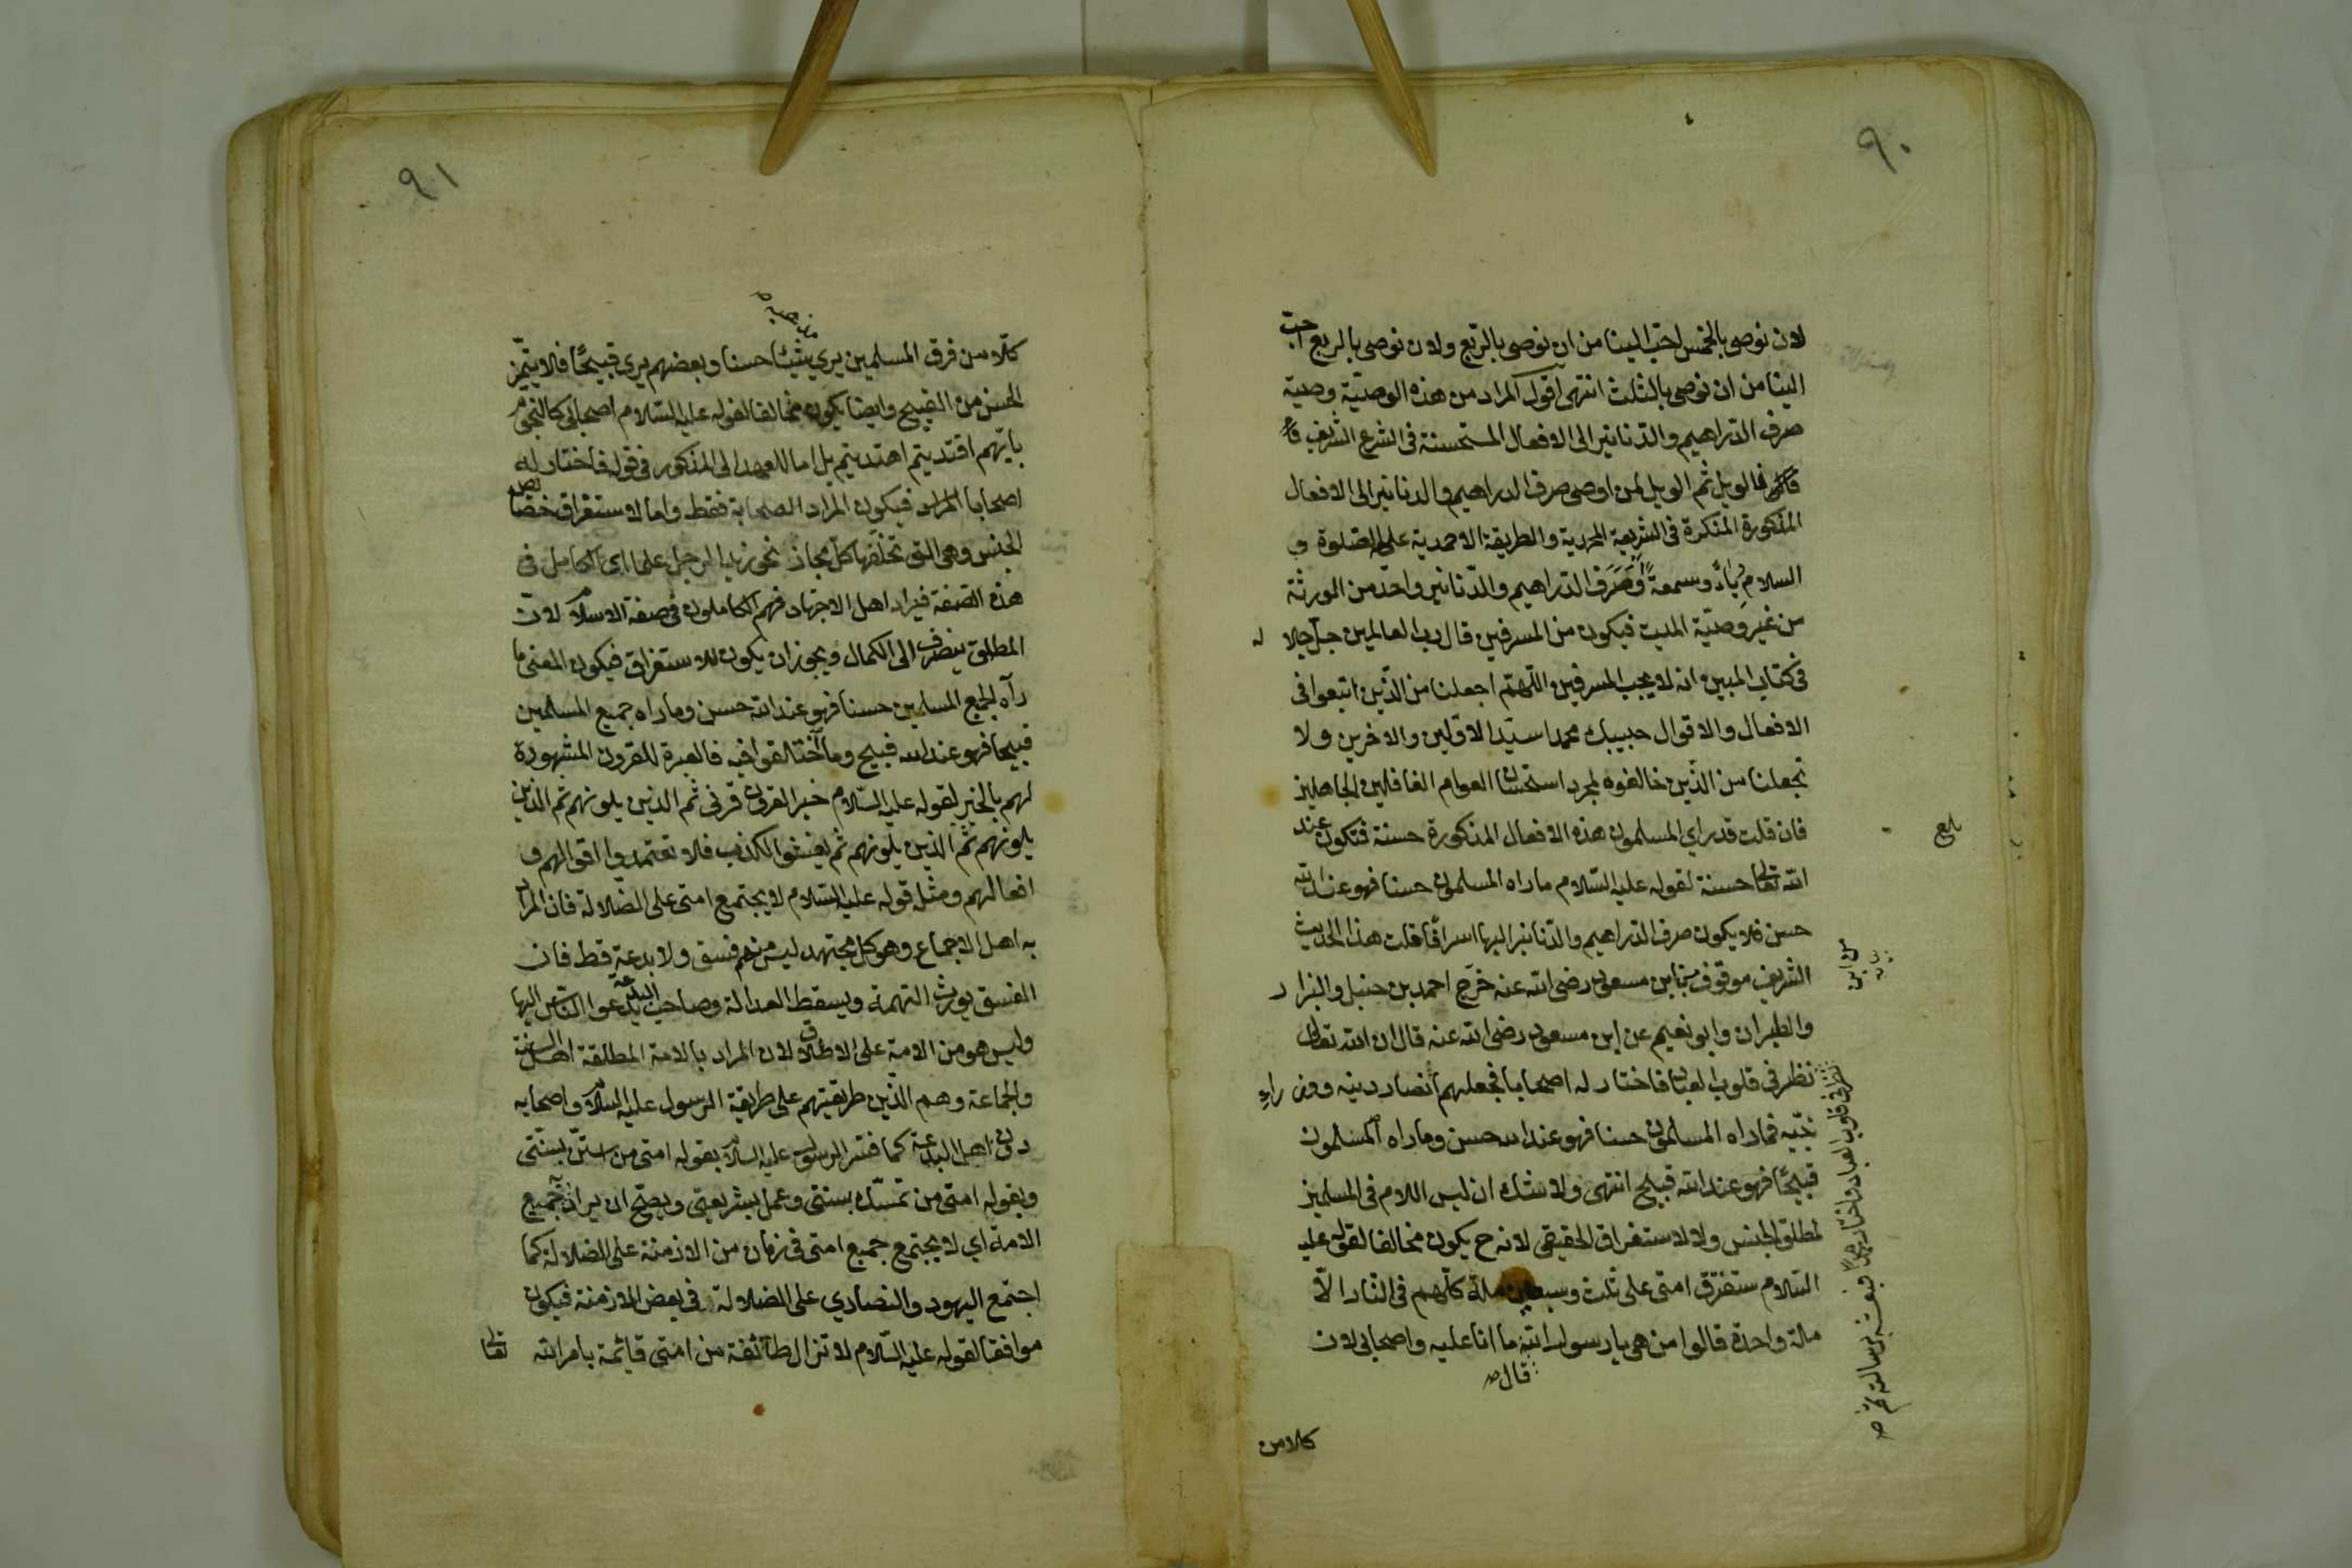 ٩٠
لان نوصى بالخمس احبّ الينا من ان نوصى بالرّبع ولان نوصى بالربع احبّ
الينا من ان نوصى بالثلث انتهى اقول المراد من هذه الوصيّة وصية
صرف الدّراهيم والدّنانير الى الافعال المستحسنة فى الشرع الشريف
فالويل ثم الويل لمن اوصى صرف الدراهيم والدنانير الى الافعال
المذكورة المنكرة فى الشريعة المحمدية والطريقة الاحمدية على الصلوة و
السلام رياءً وسمعةً او صَرَفَ الدّراهيم والدّنانير واحد من المورثة
من غير وصيّة الميت فيكون من المسرفين قال رب العالمين جلّ جلاله
فى كتاب المبين انه لا يحب المسرفين اللهمّ اجعلنا من الذّين اتبعوا فى
الافعال والاقوال حبيبك محمدا سيّد الاوّلين والاخرين ولا
تجعلنا من الّذين خالفوه بمجرد استحسان العوام الغافلين الجاهلين
فان قلت قد راي المسلمون هذه الافعال المذكورة حسنة فتكون عند
الله تعالى حسنة لقوله عليه السّلام ماراه المسلمون حسنا فهو عند الله
حسن فلا يكون صرف الدّراهيم والدّنانير اليها اسرافًا قلت هذا الحديث
الشريف موقوف من ابن مسعود رضى الله عنه خرّج احمد بن حنبل والبزار
والطبران وابو نعيم عن ابن مسعود رضى الله عنه قال ان الله تعالى
نظر فى قلوب العباد فاختار له اصحابا فجعلهم انصار دينه ووزراء
نبيّه فماراه المسلمون حسنا فهو عند الله حسن وماراه المسلمون
قبيحًا فهو عند الله قبيح انتهى ولا شك ان ليس اللام فى المسلمين
لمطلق الجنس ولا للاستغراق الحقيقى لانه ح يكون مخالفا لقوله عليه
السّلام ستفرّق امتى على ثلث وسبعين ملة كلّهم فى النّار الّا
ملة واحدة قالوا من هى يا رسول الله ما انا عليه واصحابى لان
قال صح
كلا من
بلغ
عن ابن
نظر فى قلوب العباد فاختار محمدًا فبعثه برسالته ثم صح
٩١
كلّا من فرق المسلمين يرى شيئًا حسنا وبعضهم يرى قبيحًا فلا يتميّز
مذهبه
الحسن من القبيح وايضا يكون مخالفا لقوله عليه السّلام اصحابى كالنجوم
بايّهم اقتديتم اهتديتم بل اما للعهد الى المذكور فى قوله فاختار له
اصحابا فيكون المراد الصحابة فقط واما لاستغراق خصائص
الجنس وهى التى تخلّفها كلّ مجاز نحو زيد الرجل علما اى الكامل فى
هذه الصّفة فيراد اهل الاجتهاد فهم الكاملون فى صفة الاسلام لانّ
المطلق ينصرف الى الكمال ويجوز ان يكون للاستغراق فيكون المعنى ما
رآه الجميع المسلمين حسنا فهو عند الله حسن وماراه جميع المسلمين
قبيحا فهو عند الله قبيح وما اختالفوا فيه فالعبرة للقرون المشهودة
لهم بالخير لقوله عليه السّلام خير القرون قرنى ثم الذين يلونهم ثم الذين
يلونهم ثم الذين يلونهم ثم يفشوا الكذب فلا تعتمدوا اقوالهم و
افعالهم ومثل قوله عليه السّلام لا يجتمع امتى على الضّلالة فان المراد
به اهل الاجماع وهو كل مجتهد ليس منهم فسق ولا بدعة قط فان
الفسق يورث التهمة ويسقط العدالة وصاحب البدعة يدعوا الناس اليها
وليس هو من الامة على الاطلاق لان المراد بالامة المطلقة اهل السنة
والجماعة وهم الّذين طريقتهم على طريقة الرسول عليه السّلام واصحابه
دون اهل البدعة كما فسّر الرسول عليه السلام بقوله امتى من استنّ بسنّتى
وبقوله امتى من تمسّك بسنتى وعمل بشريعتى ويصحّ ان يراد به جميع
الامة اي لا يجتمع جميع امتى فى زمان من الازمنة على الضلالة كما
اجتمع اليهود والنصارى على الضلالة فى بعض الازمنة فيكون
موافقا لقوله عليه السّلام لا تزال طائفة من امتى قائمة بامر الله تعالى